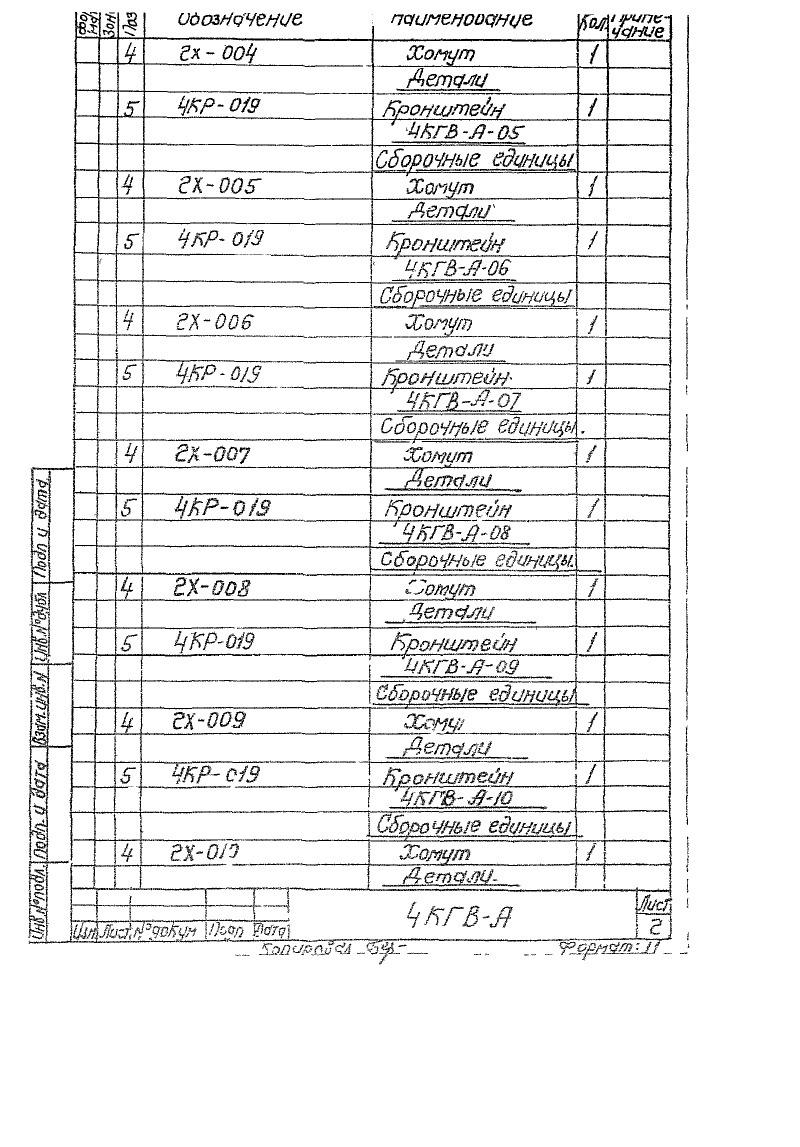 Фор мат Зон Поз Обозначение Наименование Кол. Приме- чание
4 2Х-004 Хомут 1
Детали
5 4КР-019 Кронштейн 1
4КГВ-А-05
Сборочные единицы
4 2Х-005 Хомут 1
Детали
5 4КР-019 Кронштейн 1
4КГВ-А-06
Сборочные единицы
4 2Х-006 Хомут 1
Детали
5 4КР-019 Кронштейн 1
4КГВ-А-07
Сборочные единицы.
4 2Х-007 Хомут 1
Детали
5 4КР-019 Кронштейн 1
4КГВ-А-08
Сборочные единицы.
4 2Х-008 Хомут 1
Детали
5 4КР-019 Кронштейн 1
4КГВ-А-09
Сборочные единицы
4 2Х-009 Хому 1
Детали
5 4КР-019 Кронштейн 1
4КГВ-А-10
Сборочные единицы
4 2Х-010 Хомут 1
Детали.
Инв.№подл. Подп. и дата Взам.инв.№ Инв.№дубл Подп и дата
Изм Лист №докум Подп Дата
4КГВ-А
Лист
2
Копировал
Формат: 11